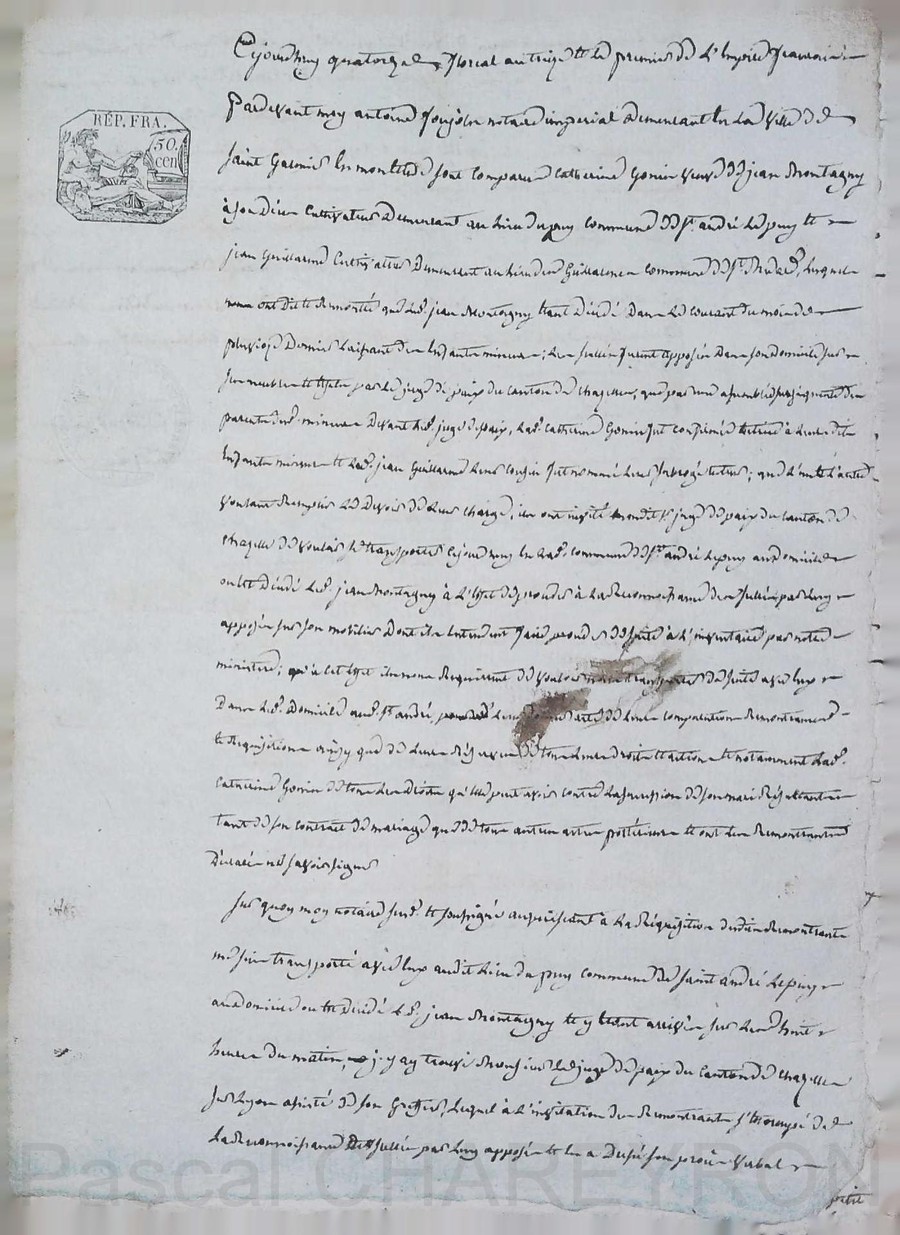 RÉP. FRA.
50.
cen
Cejourdhuy quatorze floreal an treize et le premier de L'Empire francais
Pardevant moy antoine notaire imperial demeurant en La ville de
Saint Galmier sont comparu Catherine Gonin veuve de jean Montagny
à son decu Cultivateur demeurant au lieu du puy commune de St. andré Le puy et
jean Guillarme Cultivateur Demeurant au lieu des Guillarmes commune de St. , Lesquels
nous ont dit et remontré que Led. jean Montagny etant décédé Dans Le courant du mois de
pluviose Dernier Laissant des Enfants mineurs; Les scellés furent apposés Dans son Domicile sur
ses meubles et effets par Le juge de paix du canton de chazelles, que par une assemblée des
parents des mineurs Devant Led. juge de paix, Lad. Catherine Gonin fut confirmée tutrice à Leurs dits
Enfants mineurs et Led. jean Guillarme Leur cousin fut nommé Leur subrogé tuteur; que L'un et L'autre
voulant remplir Le Devoir de Leur charge, ils ont invité mondit Sr. juge de paix du canton de
chazelle de vouloir se transporter cejourdhuy en Lad. commune de St. andré Lepuy au domicile
ou est Décédé Led. jean Montagny à L'effet de proceder à La Reconnoissance des scellés par Luy
apposés sur son mobilier Dont ils Entendent faire proceder de suite à L'inventaire par notre
ministere; qu'à cet effet ils nous Requierent de vouloir nous transporter de suite avec Eux
Dans Led. Domicile aud. St. andré, Leur acte de Leur comparution Remontrances
et Requisitions ainsy que de Leurs Réserves de tous Leurs droits et actions et notamment Lad.
Catherine Gonin de tous Les Droits qu'elle peut avoir contre La succession de son mari Résultants
tant de son contrat de mariage que de tous autres actes postérieurs et ont Les Remontrants
Déclaré ne savoir signer
Sur quoy moy notaire susd. et soussigné acquiescant à La Réquisition desdits Remontrants
me suis transporté avec Eux audit Lieu du puy commune de Saint andré Lepuy
au domicile ou est Décédé Led. jean Montagny et y étant arrivés sur Les huit
heures du matin, j'y ay trouvé Monsieur Le juge de paix du Canton de Chazelles
sur Lyon assisté de son Greffier, Lequel à L'invitation des Remontrants s'est occupé de
La Reconnoissance des scellés par Luy apposés et en a Dressé son procès verbal
Pascal CHAREYRON